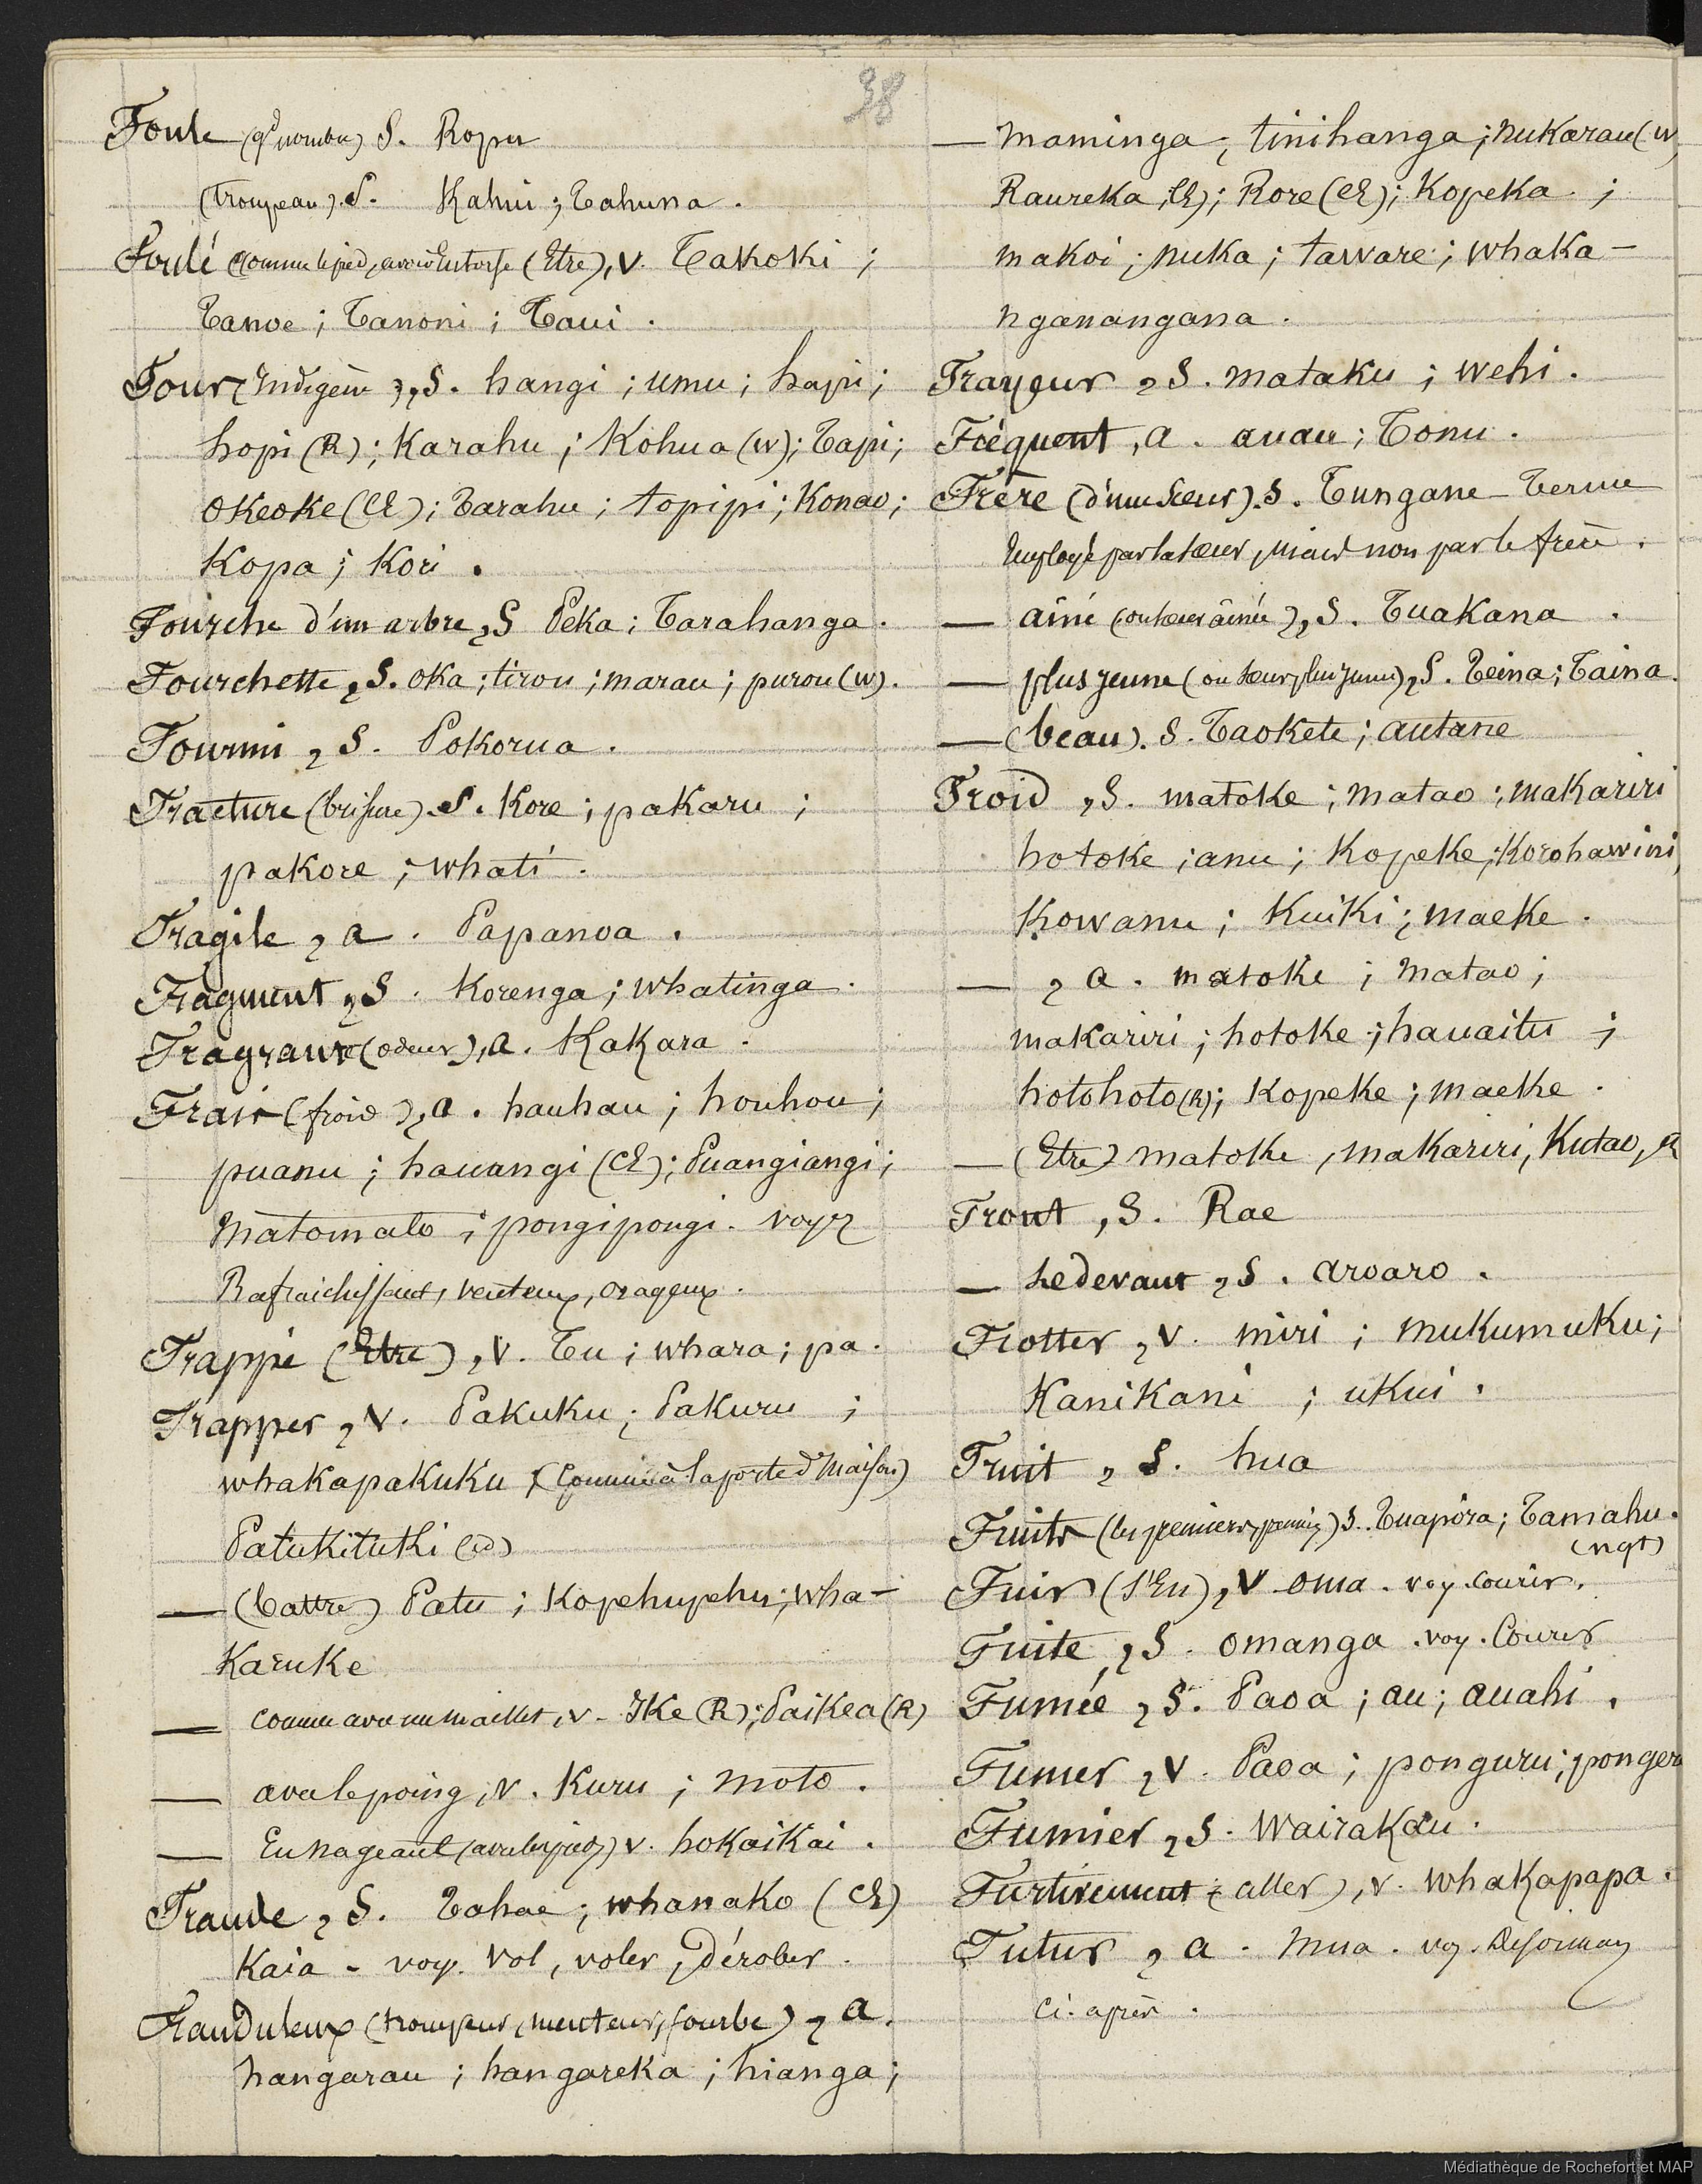 38
Foule (gd nombre) S. Ropu
(troupeau). S. Kahui ; Tahuna .
Foulé (comme le pied, avoir Entorse (Etre), v. Takoki ;
Tanoe ; Tanoni ; Taui .
Four (Indigène), S. hangi ; umu ; hapi ;
hopi (R) ; Karahu ; Kohua (W) ; Tapi ;
Okeoke (CE) ; Tarahu ; topipi ; Konao ;
Kopa ; Kori .
Fourche d'un arbre, S Peka ; Tarahanga .
Fourchette, S. Oka ; tirou ; marau ; purou (W) .
Fourmi, S. Pokorua .
Fracture (brisure). S. Kore ; pakaru ;
pakore ; whati .
Fragile, a . Papanoa .
Fragment, S . Korenga ; whatinga .
Fragrante (odeur), a. Kakara .
Frais (froid), a . hauhau ; houhou ;
puanu ; hauangi (CE) ; Puangiangi ;
Matomato ; pongipongi . voyez
Rafraichissant, venteux, orageux .
Frappé (Etre), v. Tu ; whara ; pa .
Frapper, v. Pakuku ; Pakuru ;
whakapakuku, (Comme à la porte d'Maison)
Patukituki (id)
— (battre) Patu ; Kopehupehu ; wha-
karuke
— comme avec un maillet, v- Ike (R) ; Paikea (R)
— avec le poing, v. Kuru ; Moto .
— En nageant (avec les pieds) v. hokaikai .
Fraude, S. Tahae ; whanako (CE)
Kaia - voy. Vol, voler, Dérober .
Frauduleux (trompeur, menteur, fourbe), a .
hangarau ; hangareka ; hianga ;
— Maminga ; tinihanga ; Nukarau (W)
Raureka, CE) ; Rore (CE) ; Kopeka ;
makoi ; nuka ; taware ; whaka-
nganangana .
Frayeur, S. Mataku ; wehi .
Fréquent, a . auau ; Tonu .
Frère (d'une soeur). S. Tungane - Terme
Employé par la soeur, mais non par le frère .
— ainé (ou soeur ainée), S. Tuakana .
— plus jeune (ou soeur plus jeune), S. Teina ; Taina .
— (beau). S. Taokete ; autane
Froid, S. matoke ; matao ; makariri
hotoke ; anu ; Kopeke ; Korohawini,
Kowanu ; Kuiki ; maeke .
—, a . matoke ; Matao ;
makariri ; hotoke ; hauaitu ;
hotohoto (R) ; Kopeke ; maeke .
— (Etre) matoke, makariri, Kutao,
Front, S. Rae
— le devant, S . aroaro .
Frotter, v. miri ; mukumuku ;
Kanikani ; ukui .
Fruit, S. hua
Fruits (les premiers, ) S. Tuapora ; Tamahu .
(ngt)
Fuir (S'En), v oma . voy. courir .
Fuite, S . omanga . voy. Courir
Fumée, S. Paoa ; au ; auahi .
Fumer, v. Paoa ; ponguru ;
Fumier, S. Wairakau .
Furtivement (aller), v. whakapapa .
Futur, a . Mua . voy. Desormais
Ci-après .
Médiathèque de Rochefort et MAP